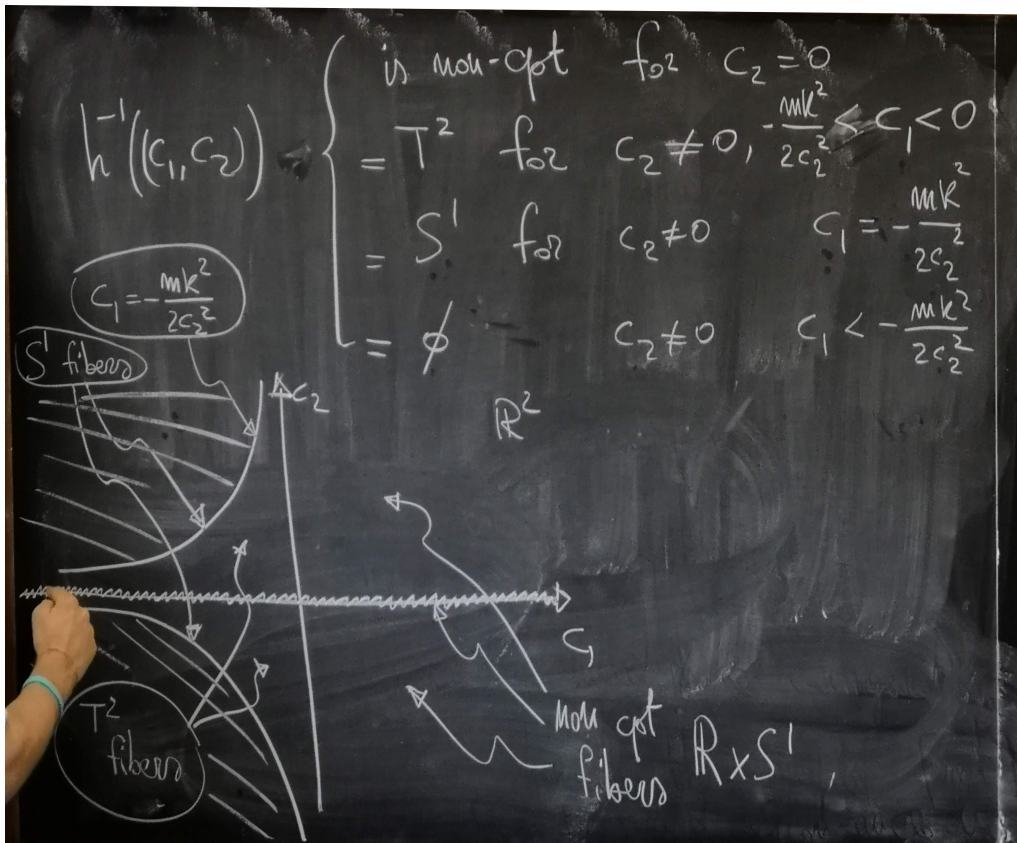 is non-cpt for C₂ = 0
h⁻¹((C₁, C₂)) = T² for C₂ ≠ 0, -mk²/2C₂² < C₁ < 0
= S¹ for C₂ ≠ 0 C₁ = -mk²/2C₂²
= ϕ C₂ ≠ 0 C₁ < -mk²/2C₂²
C₁ = -mk²/2C₂²
S¹ fibers
C₂
ℝ²
C₁
T²
fibers
non cpt
fibers ℝ×S¹,